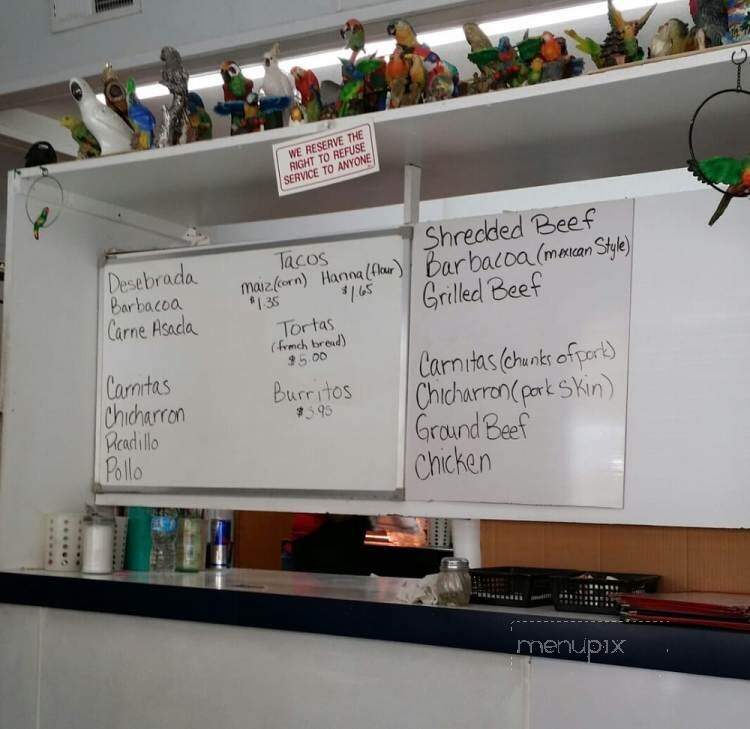 WE RESERVE THE
RIGHT TO REFUSE
SERVICE TO ANYONE
Desebrada
Barbacoa
Carne Asada
Carnitas
Chicharron
Picadillo
Pollo
Tacos
maiz (corn) Harina (flour)
$1.35 $1.65
Tortas
(french bread)
$5.00
Burritos
$3.95
Shredded Beef
Barbacoa (mexican Style)
Grilled Beef
Carnitas (chunks of pork)
Chicharron (pork Skin)
Ground Beef
Chicken
menupix